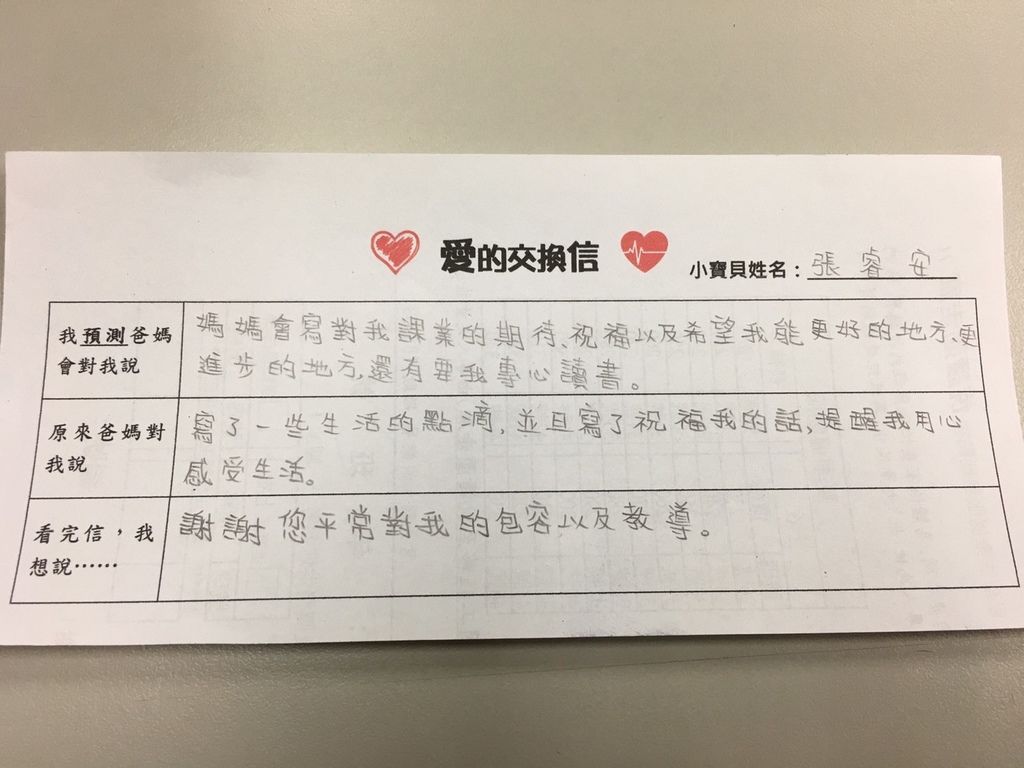 愛的交換信
小寶貝姓名：張睿安
我預測爸媽會對我說
媽媽會寫對我課業的期待、祝福以及希望我能更好的地方、更
進步的地方,還有要我專心讀書。
原來爸媽對我說
寫了一些生活的點滴,並且寫了祝福我的話,提醒我用心
感受生活。
看完信，我想說……
謝謝您平常對我的包容以及教導。